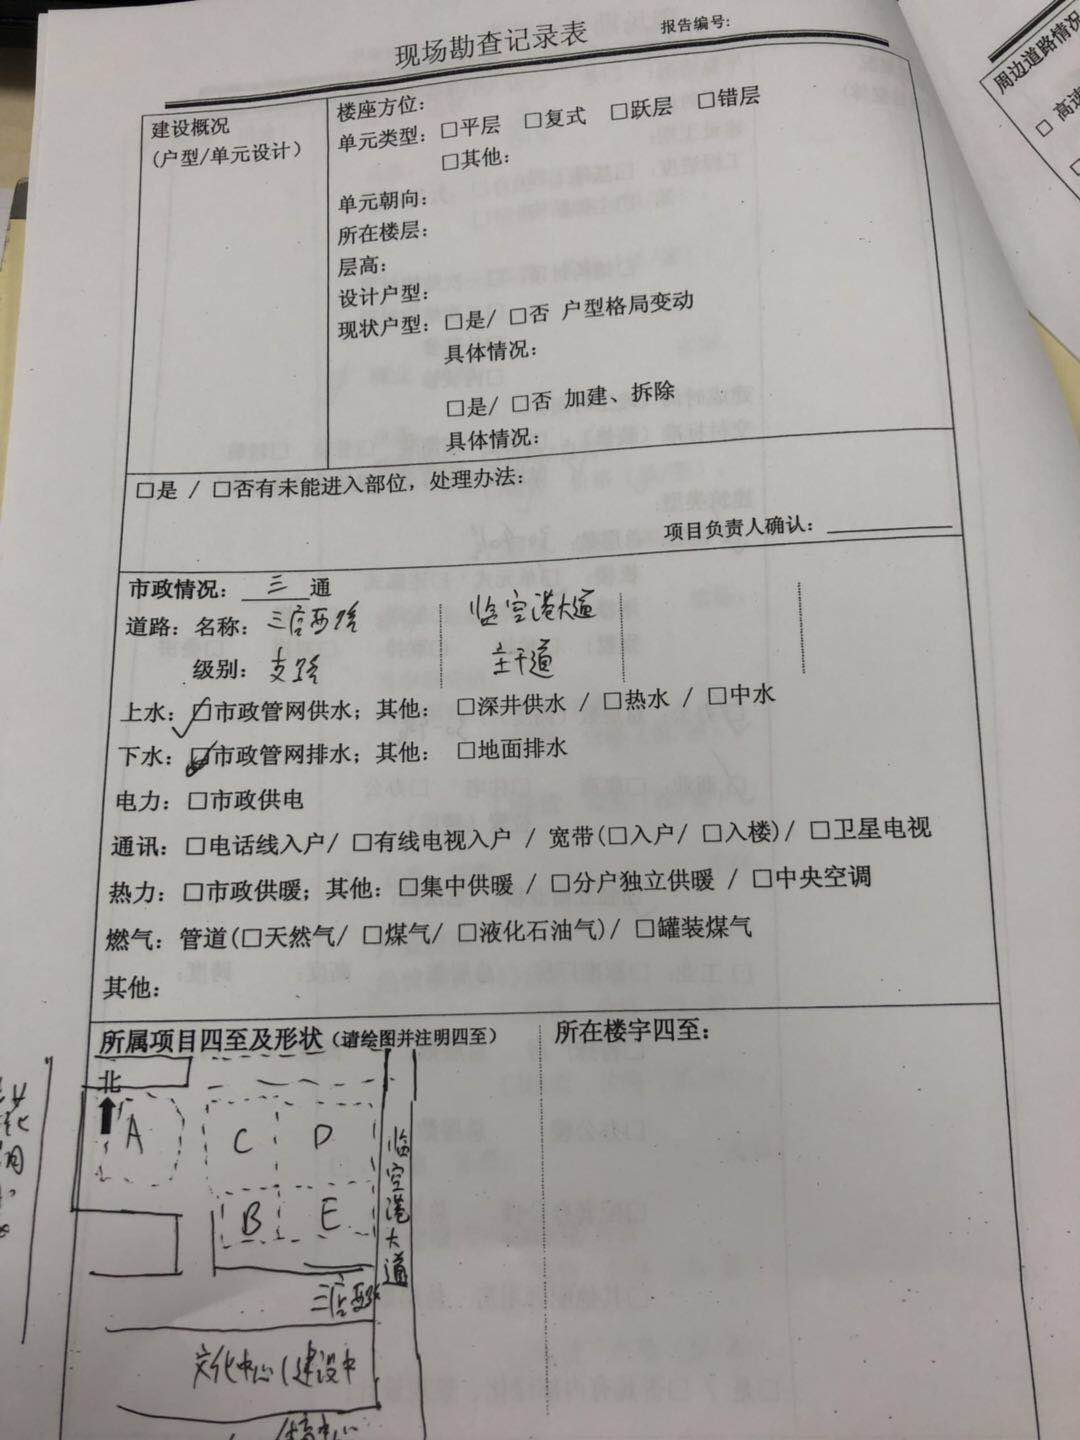 现场勘查记录表
报告编号:
建设概况
(户型/单元设计)
楼座方位:
单元类型: □平层 □复式 □跃层 □错层
□其他:
单元朝向:
所在楼层:
层高:
设计户型:
现状户型: □是/ □否 户型格局变动
具体情况:
□是/ □否 加建、拆除
具体情况:
□是 / □否有未能进入部位, 处理办法:
项目负责人确认:
市政情况: 三 通
道路: 名称: 三店西路 临空港大道
级别: 支路 主干道
上水: □市政管网供水; 其他: □深井供水 / □热水 / □中水
下水: □市政管网排水; 其他: □地面排水
电力: □市政供电
通讯: □电话线入户/ □有线电视入户 / 宽带(□入户/ □入楼)/ □卫星电视
热力: □市政供暖; 其他: □集中供暖 / □分户独立供暖 / □中央空调
燃气: 管道(□天然气/ □煤气/ □液化石油气)/ □罐装煤气
其他:
所属项目四至及形状 (请绘图并注明四至)
所在楼宇四至:
北
A C D
B E
临空港大道
三店西路
文化中心(建设中
体育中心
周边道路情况
□ 高速